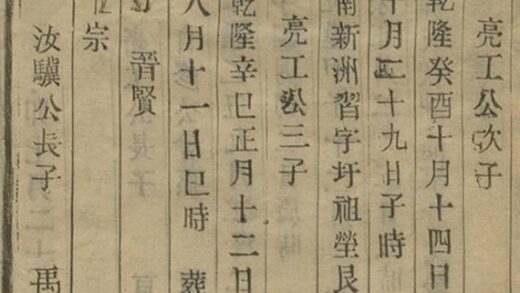 亮工公次子
乾隆癸酉十月十四日
十月二十九日子時
南新洲習字圩祖塋艮
亮工公三子
乾隆辛巳正月十二日
八月十一日巳時 葬
晉賢
宗
汝驥公長子 禹